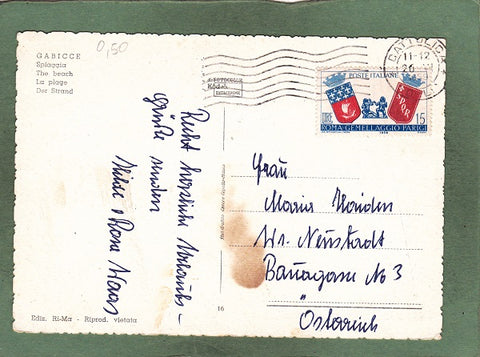 GABICCE
Spiaggia
The beach
La plage
Der Strand
0,50
CATTOLICA
11-12
20
POSTE ITALIANE
LIRE 15
SPQR
ROMA GEMELLAGGIO PARIGI
1959
Recht herzliche Urlaubs-
grüße senden
Hilde & Rosa
Frau
Maria
Wr. Neustadt
Baugasse No 3
Österreich
16
Ediz. Ri-Ma - Riprod. vietata